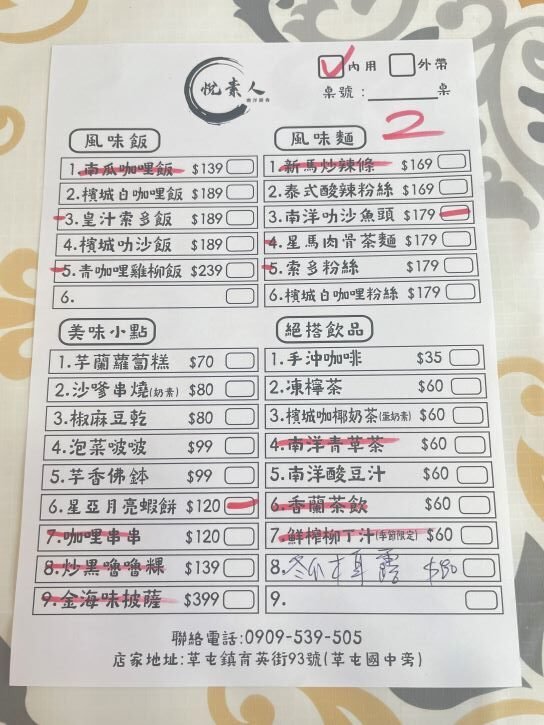 悅素人
內用 外帶
桌號：＿＿＿＿桌
2
風味飯
1.南瓜咖哩飯 $139
2.檳城白咖哩飯 $189
3.皇汁索多飯 $189
4.檳城叻沙飯 $189
5.青咖哩雞柳飯 $239
6.
風味麵
1.新馬炒辣條 $169
2.泰式酸辣粉絲 $169
3.南洋叻沙魚頭 $179
4.星馬肉骨茶麵 $179
5.索多粉絲 $179
6.檳城白咖哩粉絲 $179
美味小點
1.芋蘭蘿蔔糕 $70
2.沙嗲串燒(奶素) $80
3.椒麻豆乾 $80
4.泡菜啵啵 $99
5.芋香佛缽 $99
6.星亞月亮蝦餅 $120
7.咖哩串串 $120
8.炒黑嚕嚕粿 $139
9.金海味披薩 $399
絕搭飲品
1.手沖咖啡 $35
2.凍檸茶 $60
3.檳城咖椰奶茶(蛋奶素) $60
4.南洋青草茶 $60
5.南洋酸豆汁 $60
6.香蘭茶飲 $60
7.鮮榨柳丁汁(季節限定) $60
8.冬瓜木耳露 $80
9.
聯絡電話:0909-539-505
店家地址:草屯鎮育英街93號(草屯國中旁)